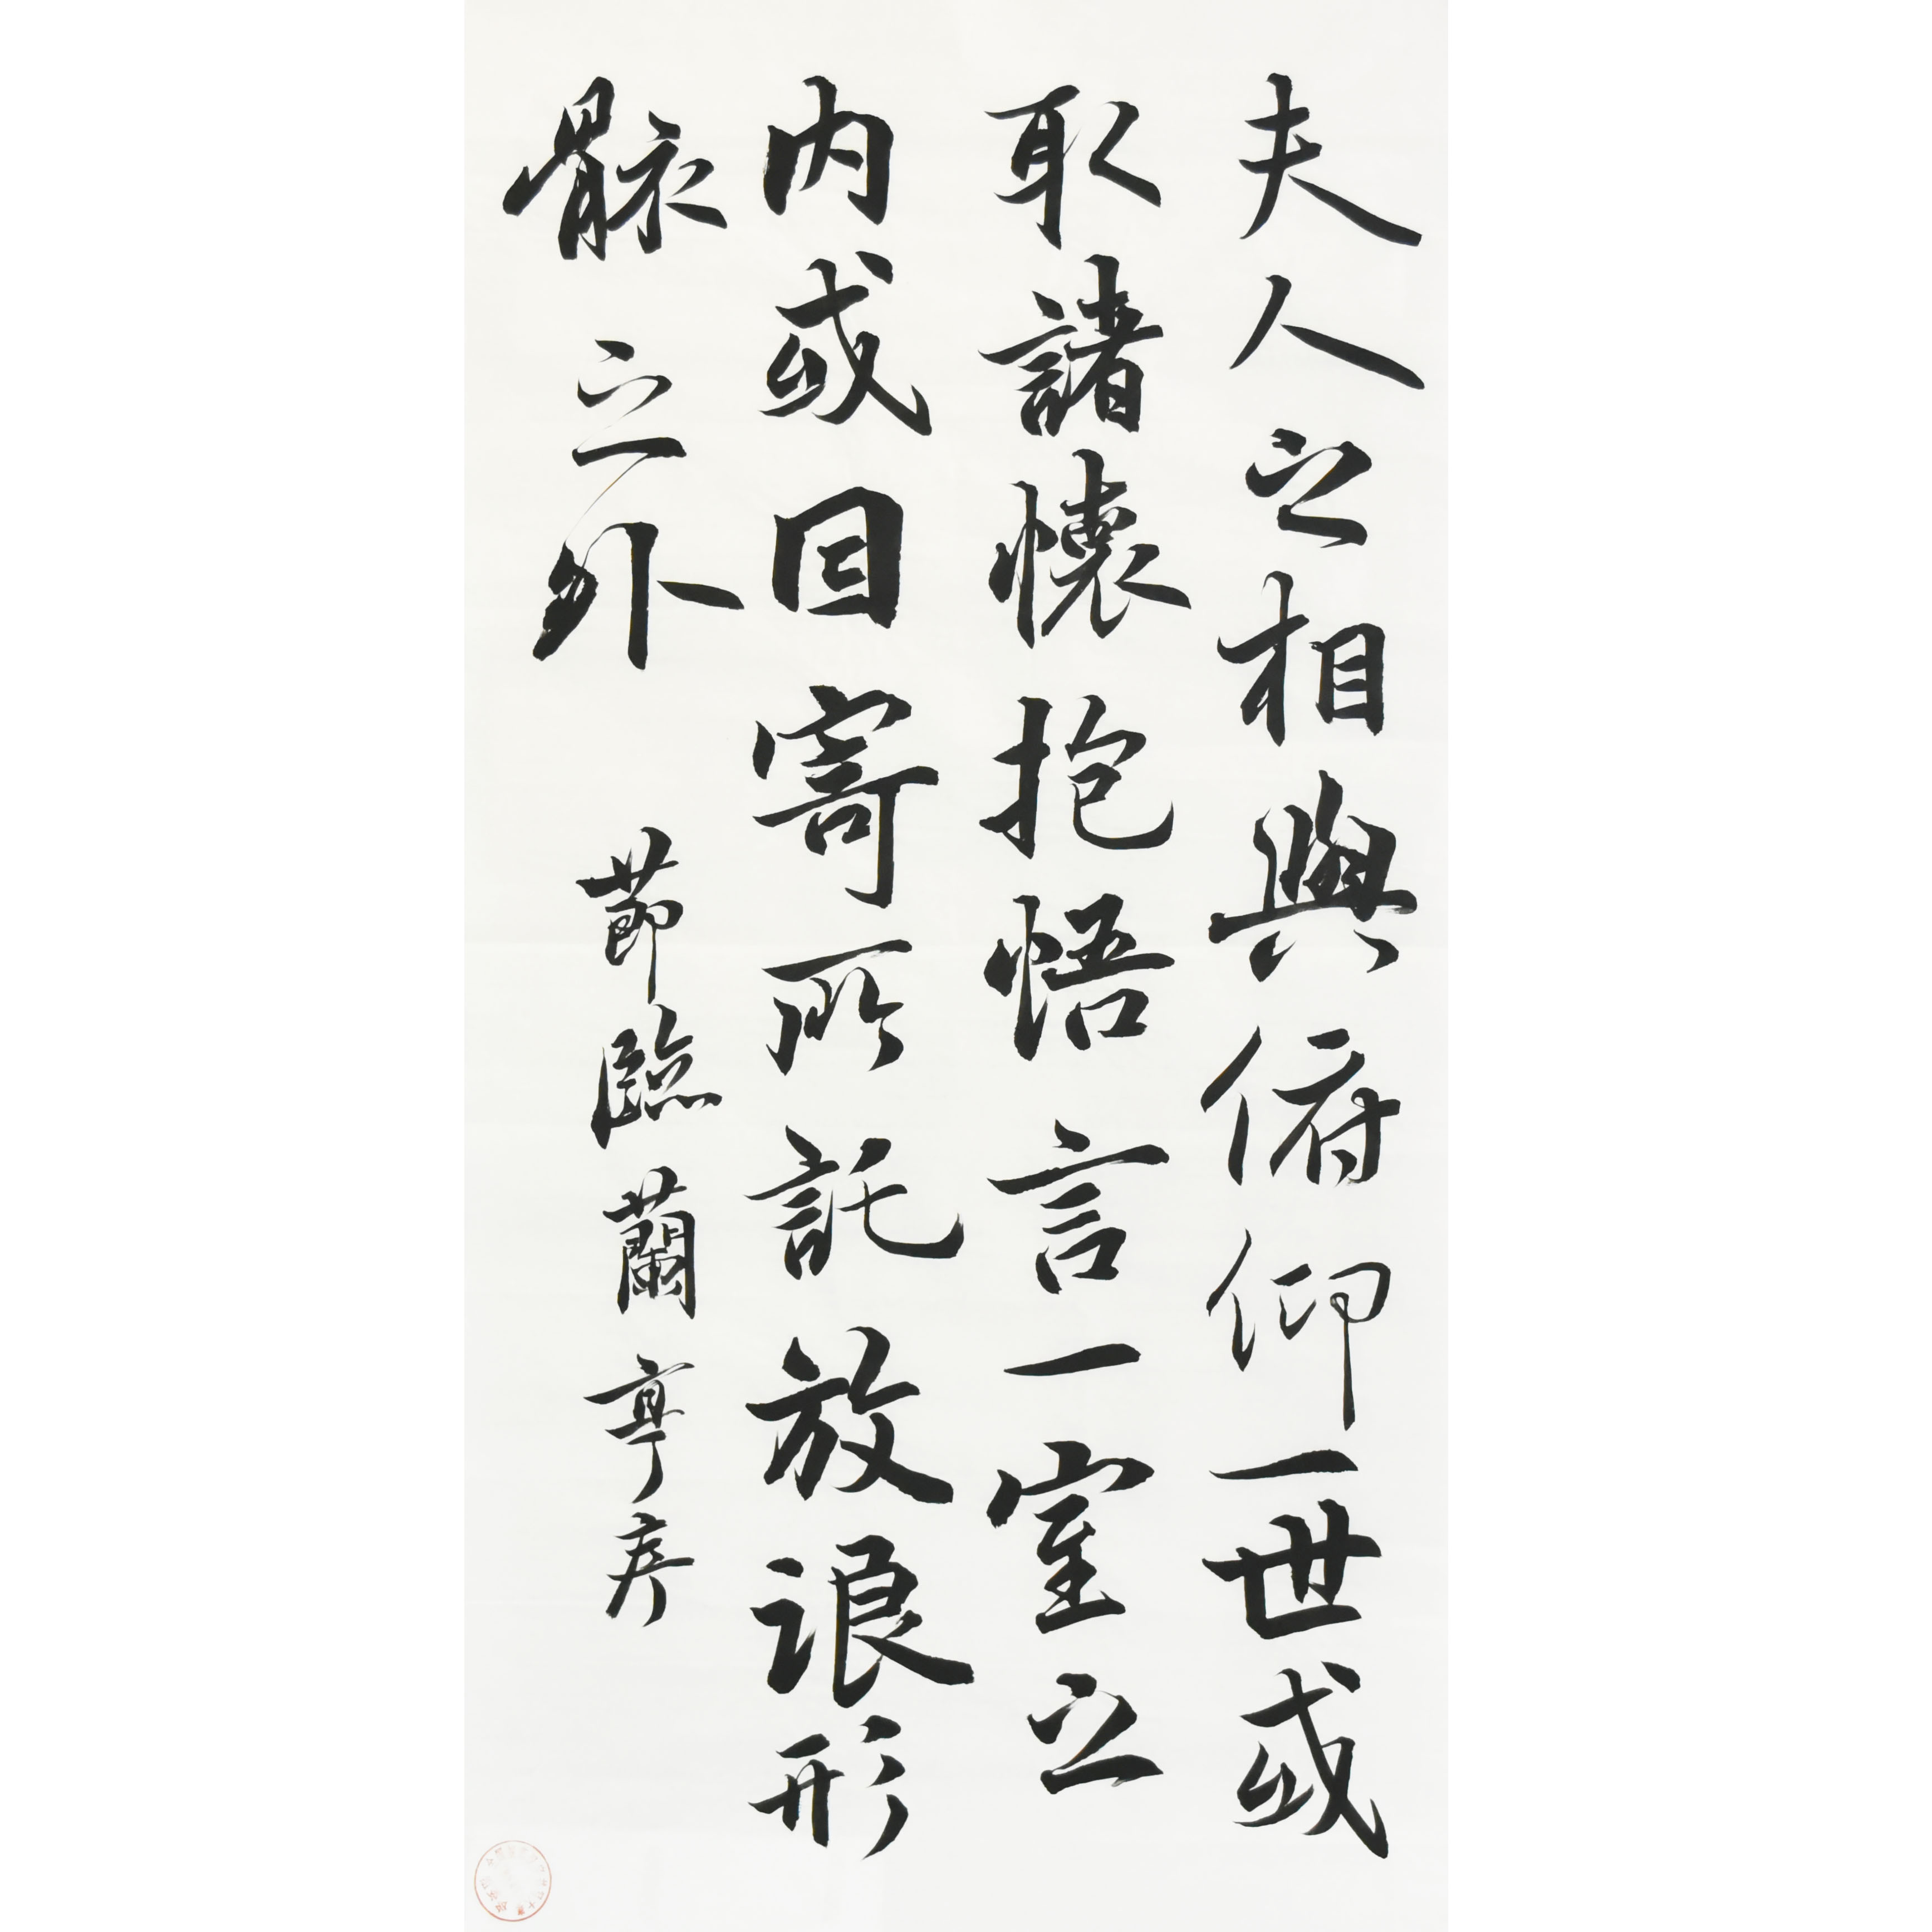 夫人之相與俯仰一世或
取諸懷抱悟言一室之
内或因寄所託放浪形
骸之外
節臨蘭亭序